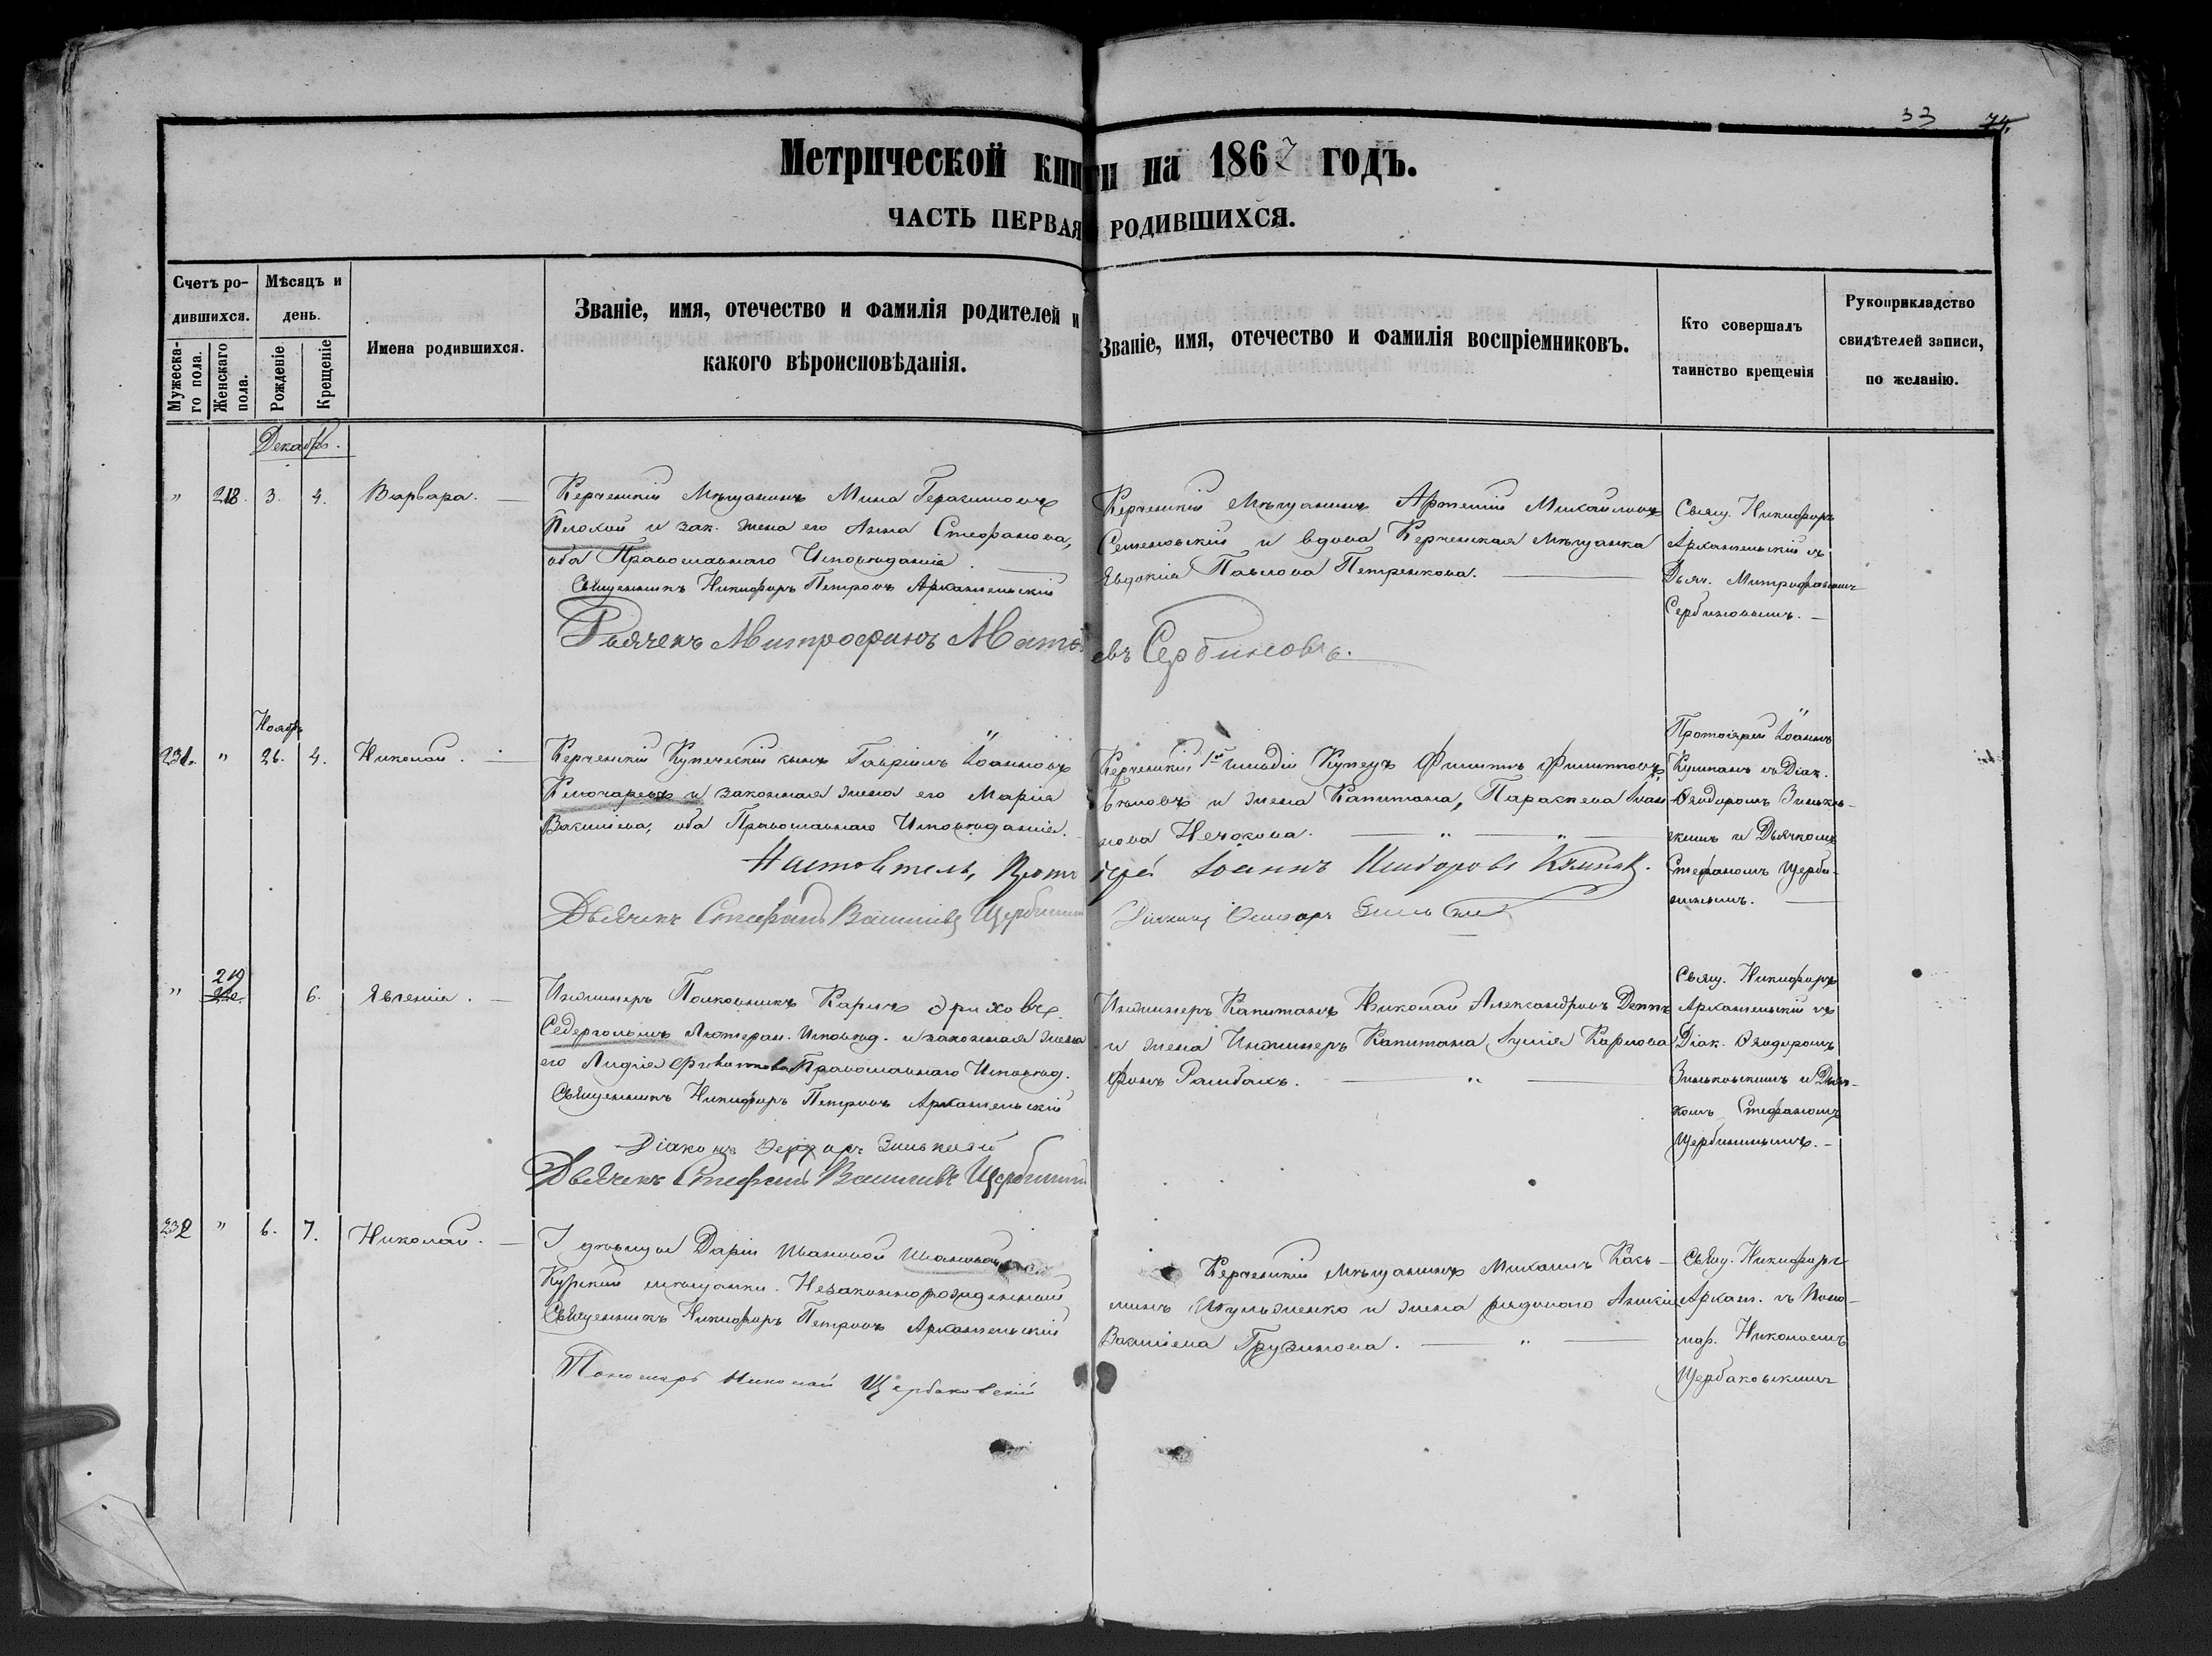 33 74.
Метрической книги на 1867 годъ.
ЧАСТЬ ПЕРВАЯ РОДИВШИХСЯ.
Счетъ родившихся.
Мужескаго пола.
Женскаго пола.
Мѣсяцъ и день.
Рожденіе
Крещеніе
Имена родившихся.
Званіе, имя, отечество и фамилія родителей и
какого вѣроисповѣданія.
Званіе, имя, отечество и фамилія воспріемниковъ.
Кто совершалъ
таинство крещенія
Рукоприкладство
свидѣтелей записи,
по желанію.
Декабрь.
" 218. 3. 4. Варвара.
Керченскій Мѣщанинъ Мина Герасимовъ
Плохой и зак. жена его Анна Стефанова,
оба Православнаго Исповѣданія.
Священникъ Никифоръ Петровъ Архангельскій
Дьячекъ Митрофанъ Матвѣевъ Сербиновъ.
Керченскій Мѣщанинъ Артемій Михайловъ
Семеновскій и вдова Керченская Мѣщанка
Евдокія Павлова Петренкова.
Свящ. Никифоръ
Архангельскій съ
Дьяч. Митрофаномъ
Сербиновымъ.
Ноябрь
231. " 26. 4. Николай.
Керченскій Купеческій сынъ Гавріилъ Іоанновъ
Ключаревъ и законная жена его Марія
Васильева, оба Православнаго Исповѣданія.
Настоятель, Протоіерей Іоаннъ
Дьячекъ Стефанъ Васильевъ Щербининъ
Діаконъ Ѳеодоръ
Керченскій 1й гильдіи Купецъ Филиппъ Филипповъ
Бѣловъ и жена Капитана, Параскева Иванова
Протоіерей Іоаннъ
съ Діак.
Ѳеодоромъ Зиньковскимъ и Дьячкомъ
Стефаномъ Щербининымъ.
" 219 6. Евгенія.
Инженеръ Полковникъ Карлъ Эриховъ
Седергольмъ Лютеран. Исповѣд. и законная жена
его Лидія Православнаго Исповѣд.
Священникъ Никифоръ Петровъ Архангельскій
Діаконъ Ѳеодоръ Зиньковскій
Дьячекъ Стефанъ Васильевъ Щербининъ
Инженеръ Капитанъ Николай Александровъ Деппъ
и жена Инженеръ Капитана Юлія Карлова
фонъ Рамбахъ.
Свящ. Никифоръ
Архангельскій съ
Діак. Ѳеодоромъ
Зиньковскимъ и Дьячкомъ
Стефаномъ
Щербининымъ.
232 " 6. 7. Николай.
У дѣвицы Даріи Ивановой Ивановой
Курской мѣщанки. Незаконнорожденный
Священникъ Никифоръ Петровъ Архангельскій
Пономарь Николай Щербаковскій
Керченскій мѣщанинъ Михаилъ
и жена рядоваго
Васильева Грузинова.
Свящ. Никифоръ
Архан. съ Пономар.
Николаемъ
Щербаковскимъ